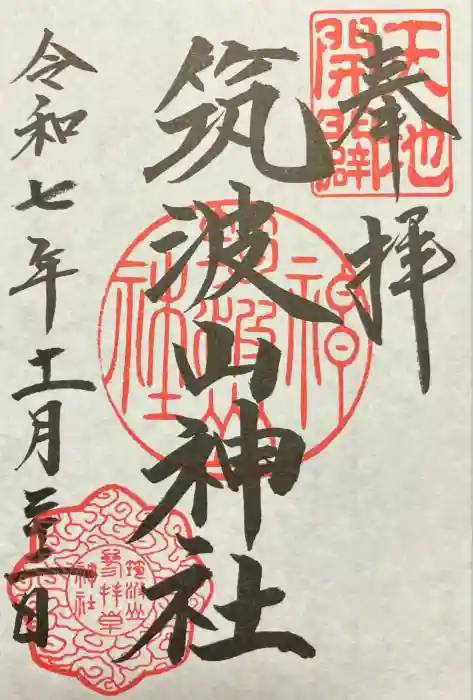 奉拝
天地
開闢
筑波山神社
筑波山
神社
令和七年十一月二十一日
筑波山
神社
参拝章